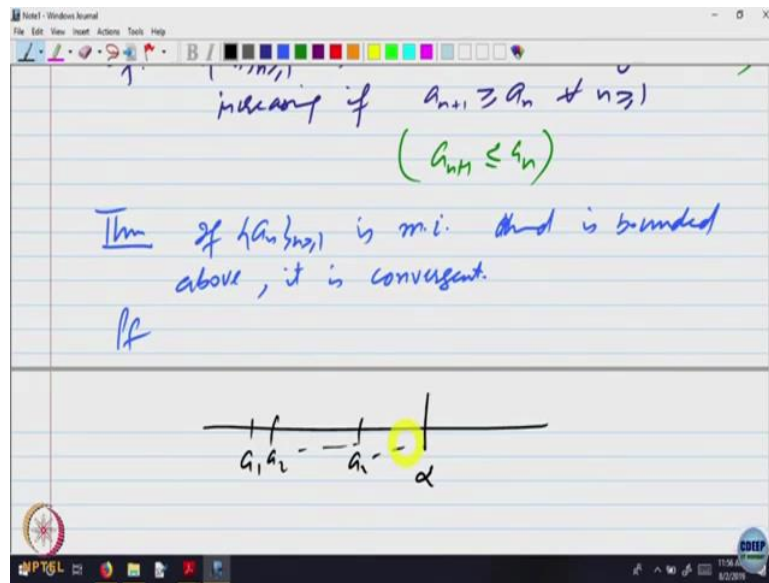 Note1 - Windows Journal
File Edit View Insert Actions Tools Help
B I
increasing if a_{n+1} ≥ a_n ∀ n≥1
(a_{n+1} ≤ a_n)
Thm If {a_n}_{n≥1} is m.i. and is bounded
above, it is convergent.
Pf
a_1 a_2 - - - a_n - - α
NPTEL
CDEEP
8/2/2019